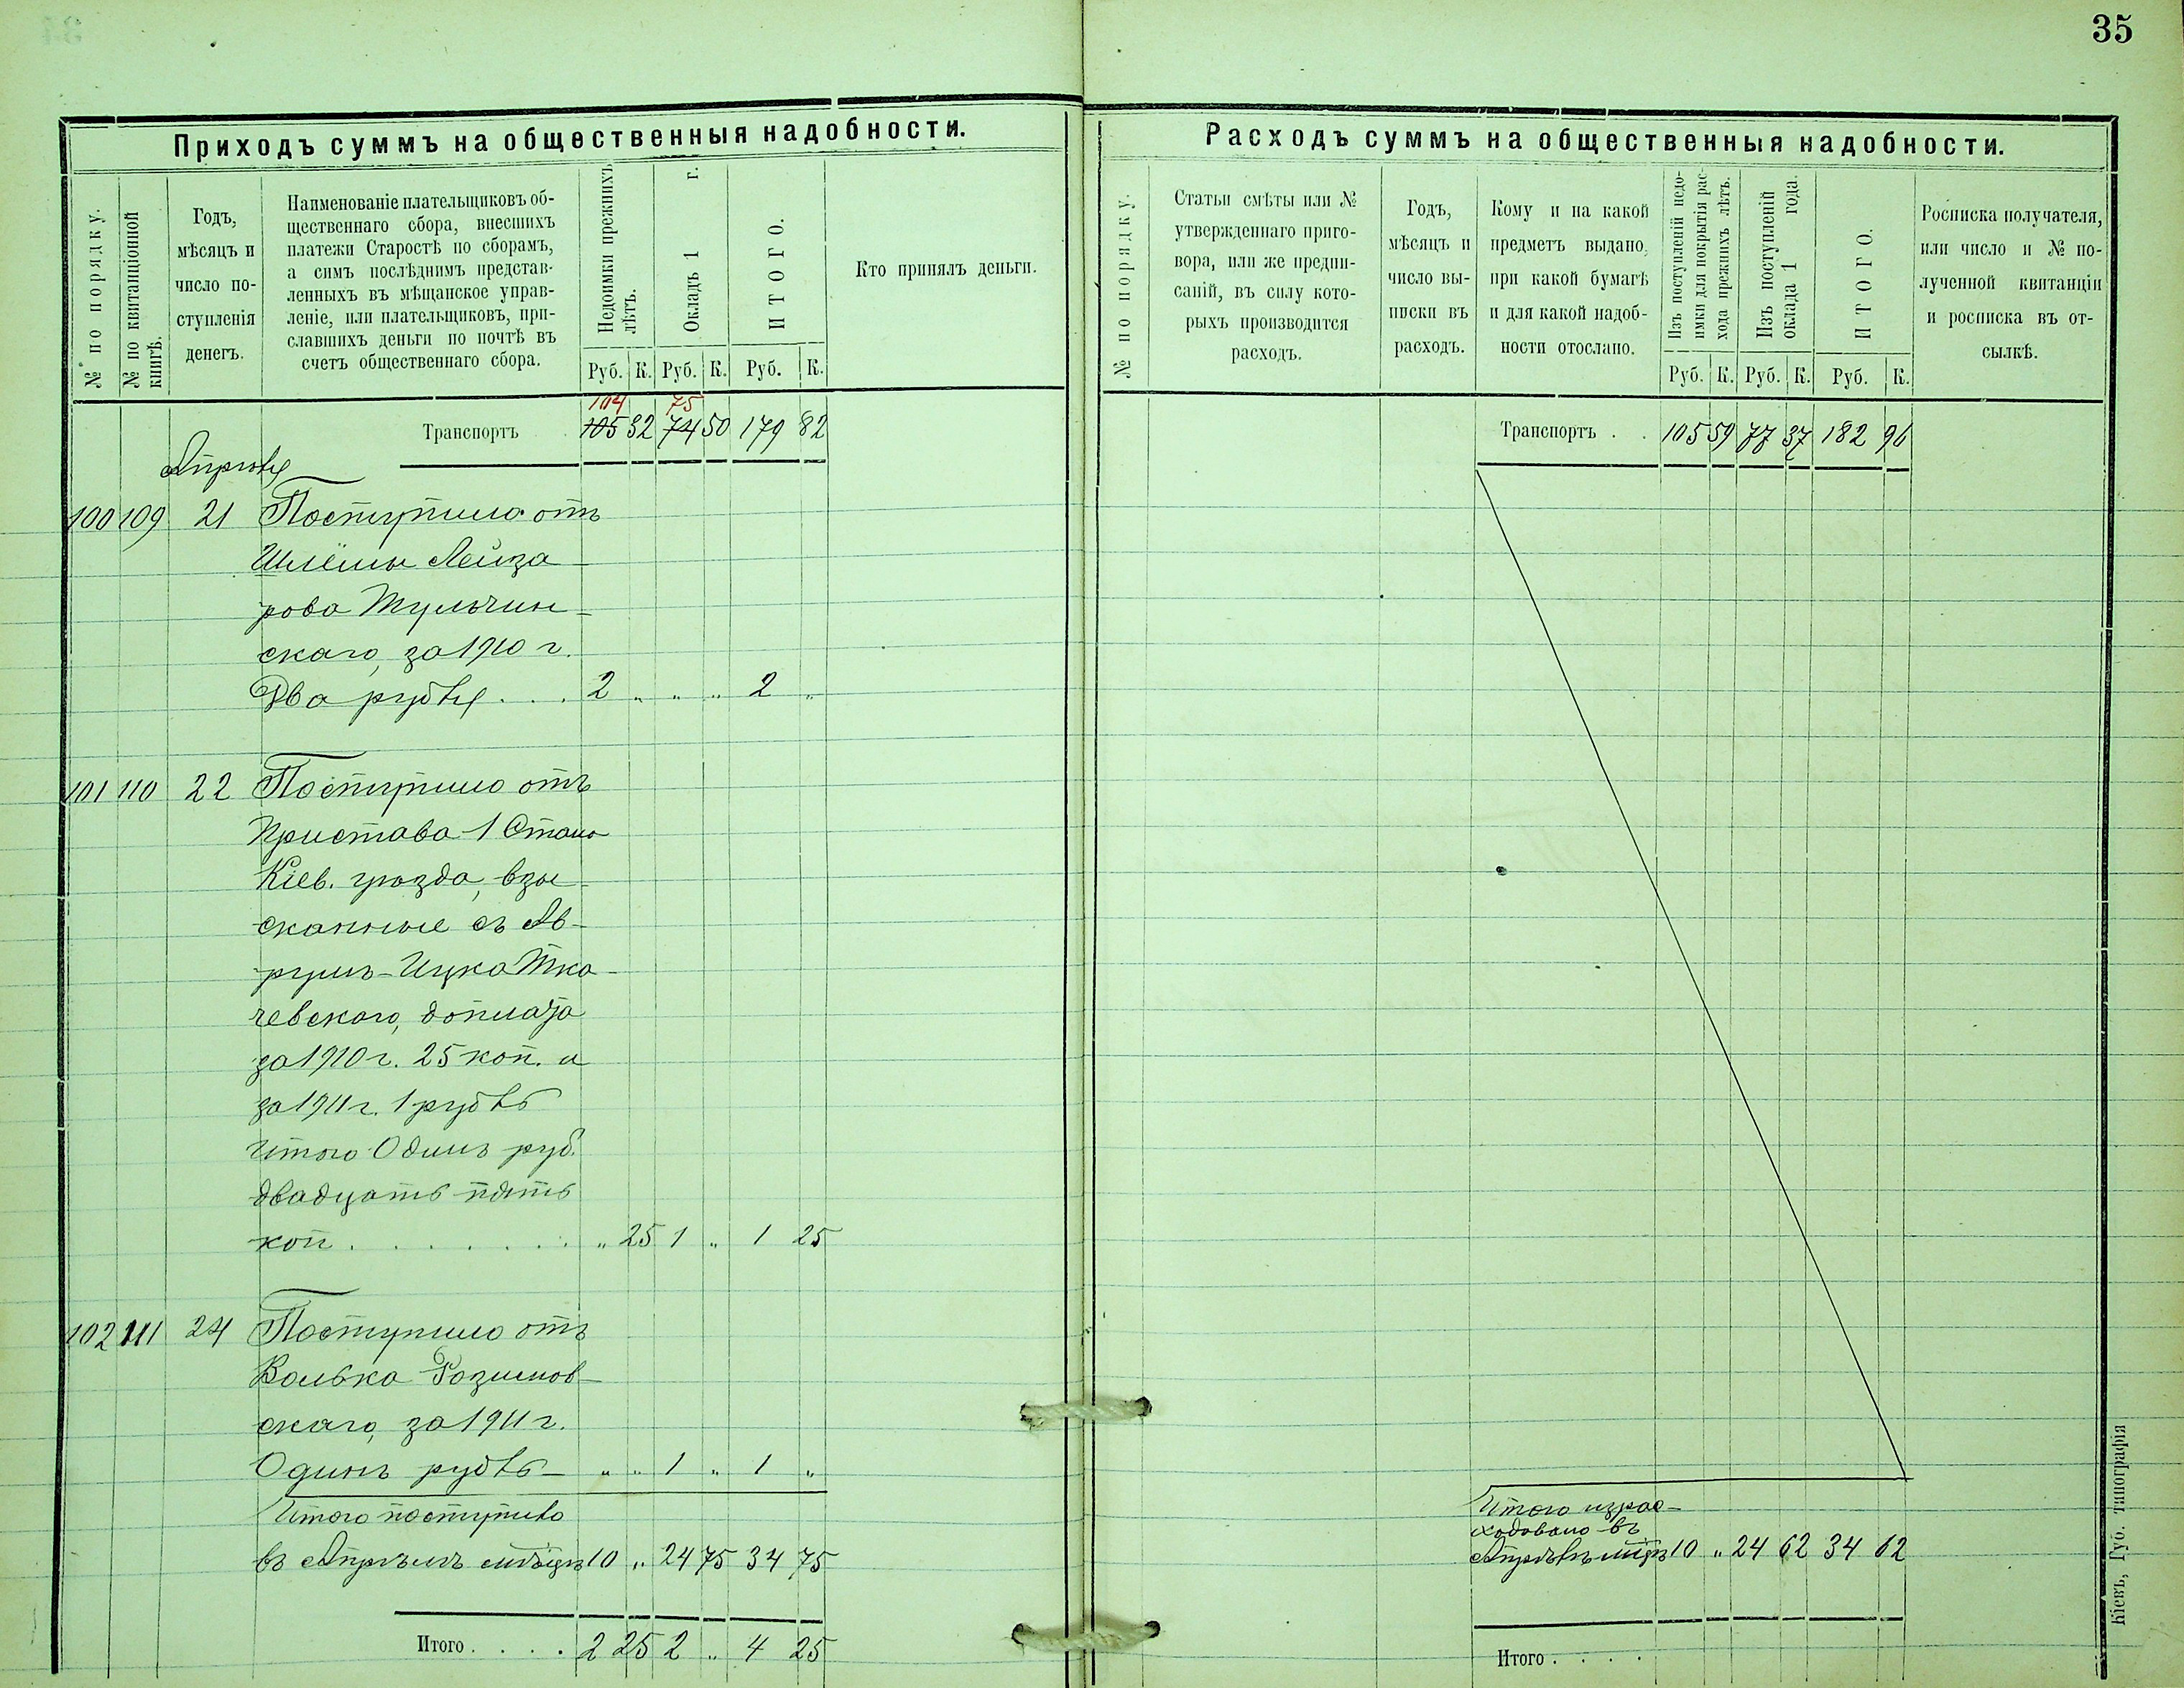 35
Приходъ суммъ на общественныя надобности.
№ по порядку.
№ по квитанціонной книгѣ.
Годъ,
мѣсяцъ и
число по-
ступленія
денегъ.
Наименованіе плательщиковъ об-
щественнаго сбора, внесшихъ
платежи Старостѣ по сборамъ,
а симъ послѣднимъ представ-
ленныхъ въ мѣщанское управ-
леніе, или плательщиковъ, при-
славшихъ деньги по почтѣ въ
счетъ общественнаго сбора.
Недоимки прежнихъ
лѣтъ.
Окладъ 1 г.
ИТОГО.
Руб. К. Руб. К. Руб. К.
Кто принялъ деньги.
104 75
Транспортъ 105 32 74 50 179 82
Апрѣль
100 109 21 Поступило отъ
Шлёмы Лейза-
рова Тульчин-
скаго, за 1910 г.
Два рубля . . . 2 „ „ „ 2 „
101 110 22 Поступило отъ
Пристава 1 Стана
Кіев. уѣзда, взы-
сканные съ Ав-
румъ-Ицка Тка-
чевскаго, доплата
за 1910 г. 25 коп. и
за 1911 г. 1 рубль
Итого Одинъ руб.
двадцать пять
коп . . . . . . . „ 25 1 „ 1 25
102 111 24 Поступило отъ
Волька Розинов-
скаго, за 1911 г.
Одинъ рубль – „ „ 1 „ 1 „
Итого поступило
въ Апрѣлѣ мѣсяцѣ 10 „ 24 75 34 75
Итого . . . . 2 25 2 „ 4 25
Расходъ суммъ на общественныя надобности.
№ по порядку.
Статьи смѣты или №
утвержденнаго приго-
вора, или же предпи-
саній, въ силу кото-
рыхъ производится
расходъ.
Годъ,
мѣсяцъ и
число вы-
писки въ
расходъ.
Кому и на какой
предметъ выдано,
при какой бумагѣ
и для какой надоб-
ности отослано.
Изъ поступленій недо-
имки для покрытія рас-
хода прежнихъ лѣтъ.
Изъ поступленій
оклада 1 года.
ИТОГО.
Руб. К. Руб. К. Руб. К.
Росписка получателя,
или число и № по-
лученной квитанціи
и росписка въ от-
сылкѣ.
Транспортъ . . 105 59 77 37 182 96
Итого израс-
ходовано въ
Апрѣлѣ мѣсяцѣ 10 „ 24 62 34 62
Итого . . . .
Кіевъ, Губ. Типографія